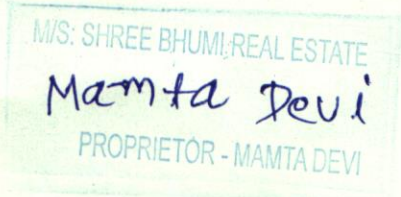 M/S: SHREE BHUMI REAL ESTATE
Mamta Devi
PROPRIETOR - MAMTA DEVI